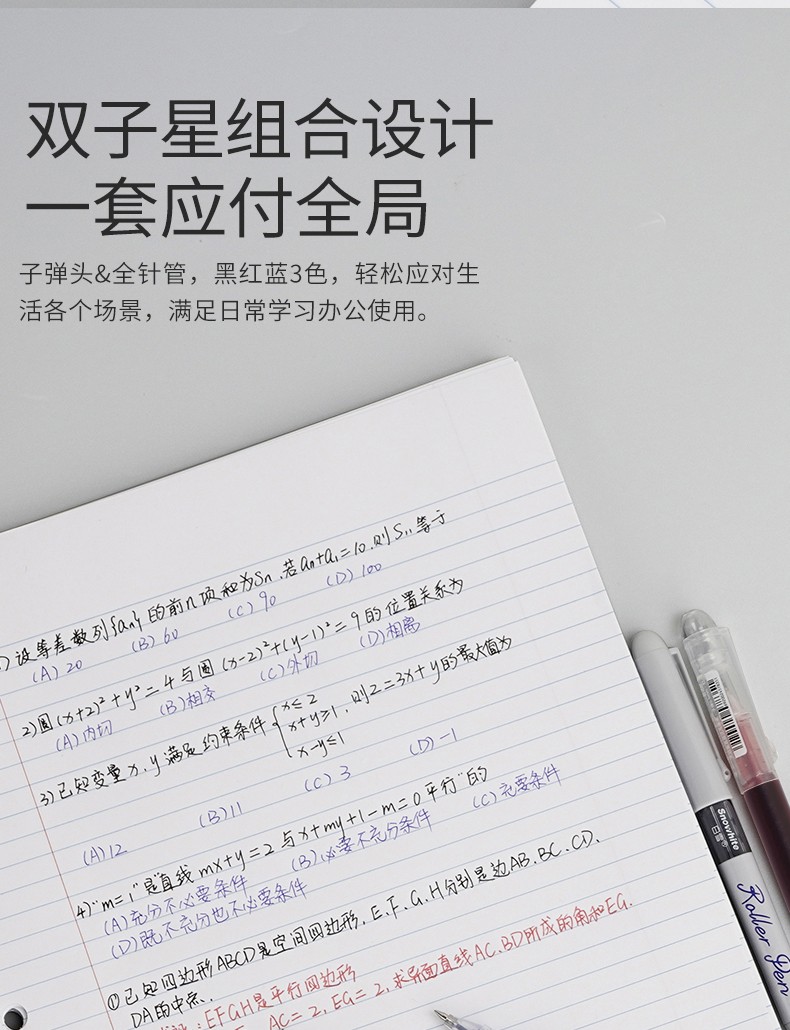 双子星组合设计
一套应付全局
子弹头&全针管，黑红蓝3色，轻松应对生
活各个场景，满足日常学习办公使用。
)设等差数列{an}的前n项和为Sn,若an+a1=10,则S11等于
(A)20 (B)60 (C)90 (D)100
2)圆(x+2)²+y²=4与圆(x-2)²+(y-1)²=9的位置关系为
(A)内切 (B)相交 (C)外切 (D)相离
3)已知变量x,y满足约束条件{x≤2 x+y≥1 x-y≤1,则z=3x+y的最大值为
(A)12 (B)11 (C)3 (D)-1
4)"m=1"是"直线mx+y=2与x+my+1-m=0平行"的
(A)充分不必要条件 (B)必要不充分条件 (C)充要条件
(D)既不充分也不必要条件
①已知四边形ABCD是空间四边形,E.F.G.H分别是边AB.BC.CD.
DA的中点.
:EFGH是平行四边形
AC=2,EG=2,求异面直线AC.BD所成的角和EG.
Snowhite
白雪®
Roller Pen